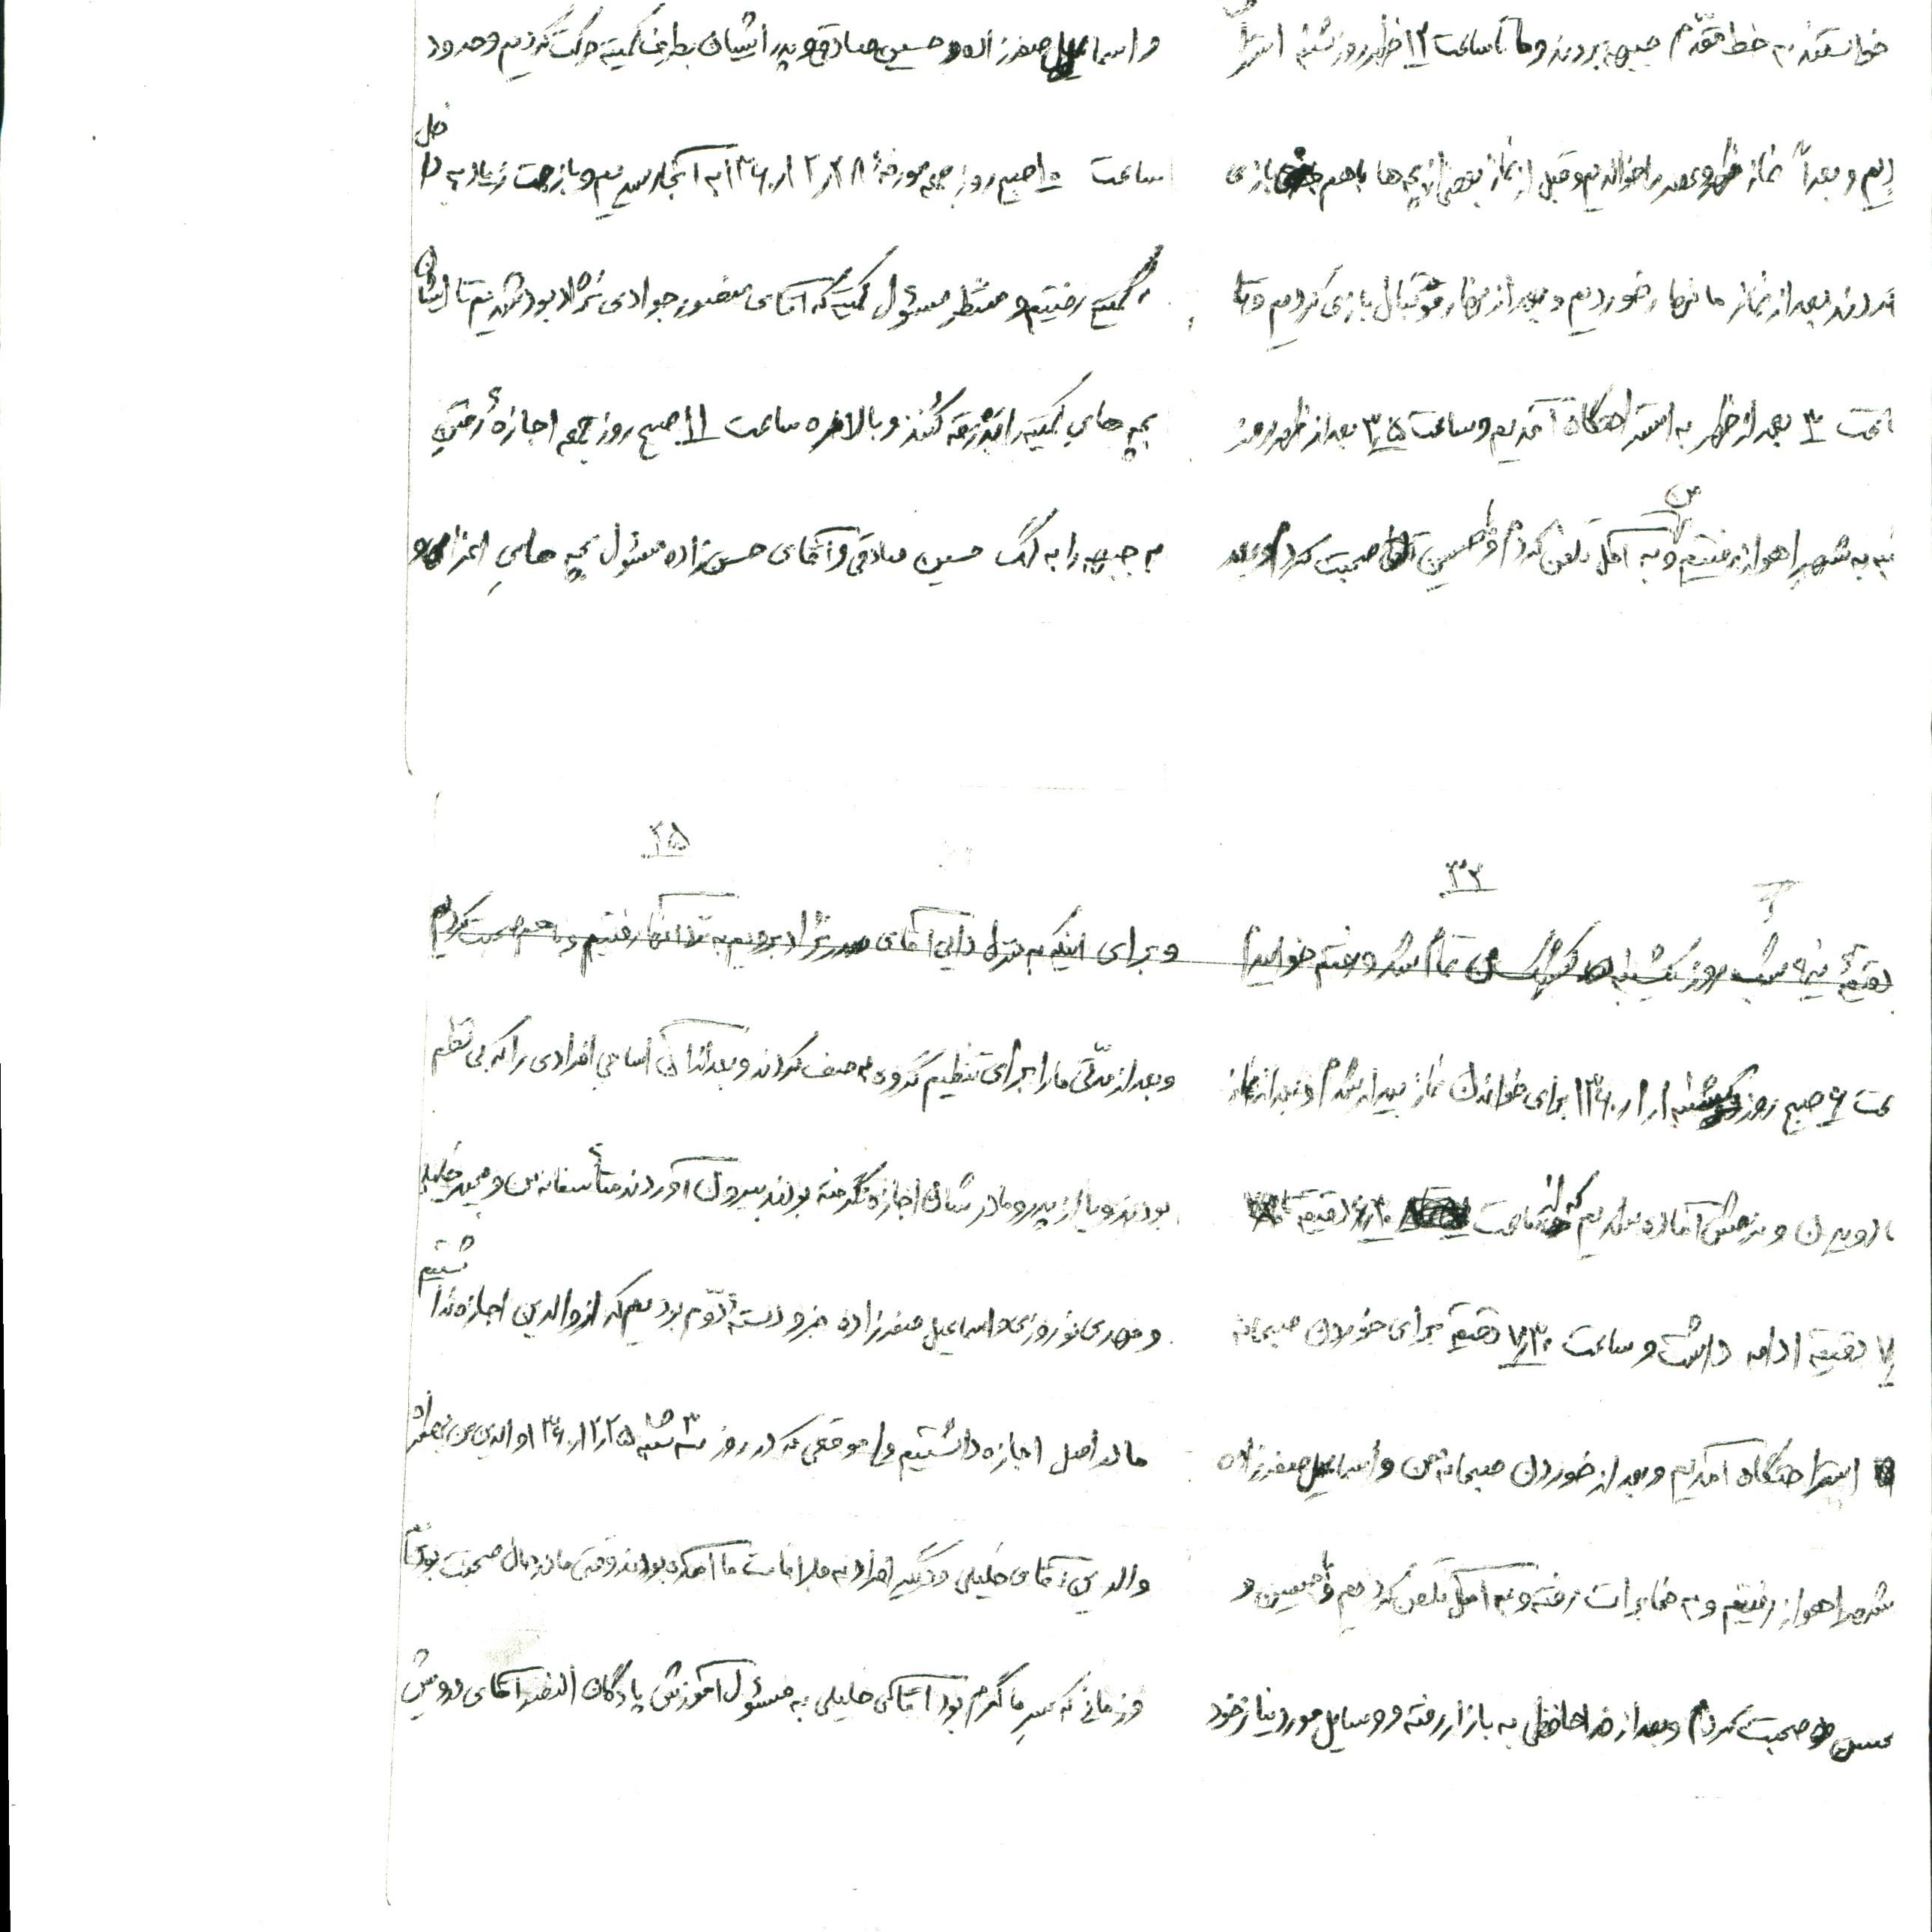 خواستند به خط مقدّم جبهه بردند و ما تا ساعت ۱۲ ظهر روز شنبه استرا
دیم و بعداً نماز ظهر و عصر را خواندیم و قبل از نماز بعضی از بچه ها با هم بازی
کردند بعد از نماز ما نهار خوردیم و بعد از نهار فوتبال بازی کردیم و تا
ساعت ۳ بعد از ظهر به استراحتگاه آمدیم و ساعت ۳٫۱۵ بعد از ظهر روز
شنبه به شهر اهواز رفتیم و من به آمل تلفن کردم و با حسین صحبت کردم و بعد
و اسماعیل صفرزاده و حسین صادقی و پدر ایشان بطرف کمیته حرکت کردیم و حدود
ساعت ۱۰ صبح روز جمعه مورخهٔ ۱۳۶۰٫۱۲٫۲۸ به آنجا رسیدیم و با زحمت زیاد به داخل
کمیته رفتیم و منتظر مسئول کمیته که آقای منصور جوادی نژاد بود شدیم تا ایشان
بچه های کمیته را بدرقه کنند و بالاخره ساعت ۱۱ صبح روز جمعه اجازهٔ رفتن
به جبهه را به کمک حسین صادقی و آقای حسن زاده مسئول بچه های اعزامی و
۳۴
دقیقهٔ شب روز یکشنبه تمام شد و رفتیم خوابیدیم
ساعت ۶ صبح روز یکشنبه ۱۳۶۰٫۱٫۱ برای خواندن نماز بیدار شدم و بعد از نماز
دویدن و نرمش آماده شدیم که از ساعت ۶٫۳۰ دقیقه تا
۷ دقیقه ادامه داشت و ساعت ۷٫۳۰ دقیقه برای خوردن صبحانه
استراحتگاه آمدیم و بعد از خوردن صبحانه من و اسماعیل صفرزاده
شهر اهواز رفتیم و به مخابرات رفته و به آمل تلفن کردیم و با حسین و
محسن صحبت کردم و بعد از خداحافظی به بازار رفته و وسایل مورد نیاز خود
۲۵
و برای اینکه به منزل دایی آقای نژاد برویم به آنجا رفتیم و با هم صحبت کردیم
و بعد از مدّتی ما را برای تنظیم گروه به صف کردند و بعد از آن اسامی افرادی را که بی نظم
بودند و یا از پدر و مادرشان اجازه نگرفته بودند بیرون آوردند متأسفانه من و مجید خلیلی
و مهدی نوروزی و اسماعیل صفرزاده جزو دستهٔ دوّم بردیم که از والدین اجازه نداشتیم
ما در اصل اجازه داشتیم و موقعی که در روز ۳ شنبه ۱۳۶۰٫۱۲٫۲۵ والدین من به همراه
والدین آقای خلیلی و دیگر افراد به ملاقات ما آمده بودند وقتی ما در حال صحبت بودیم
و زمانی که سرِ ما گرم بود آقای خلیلی به مسئول آموزش پادگان النصر آقای درویش